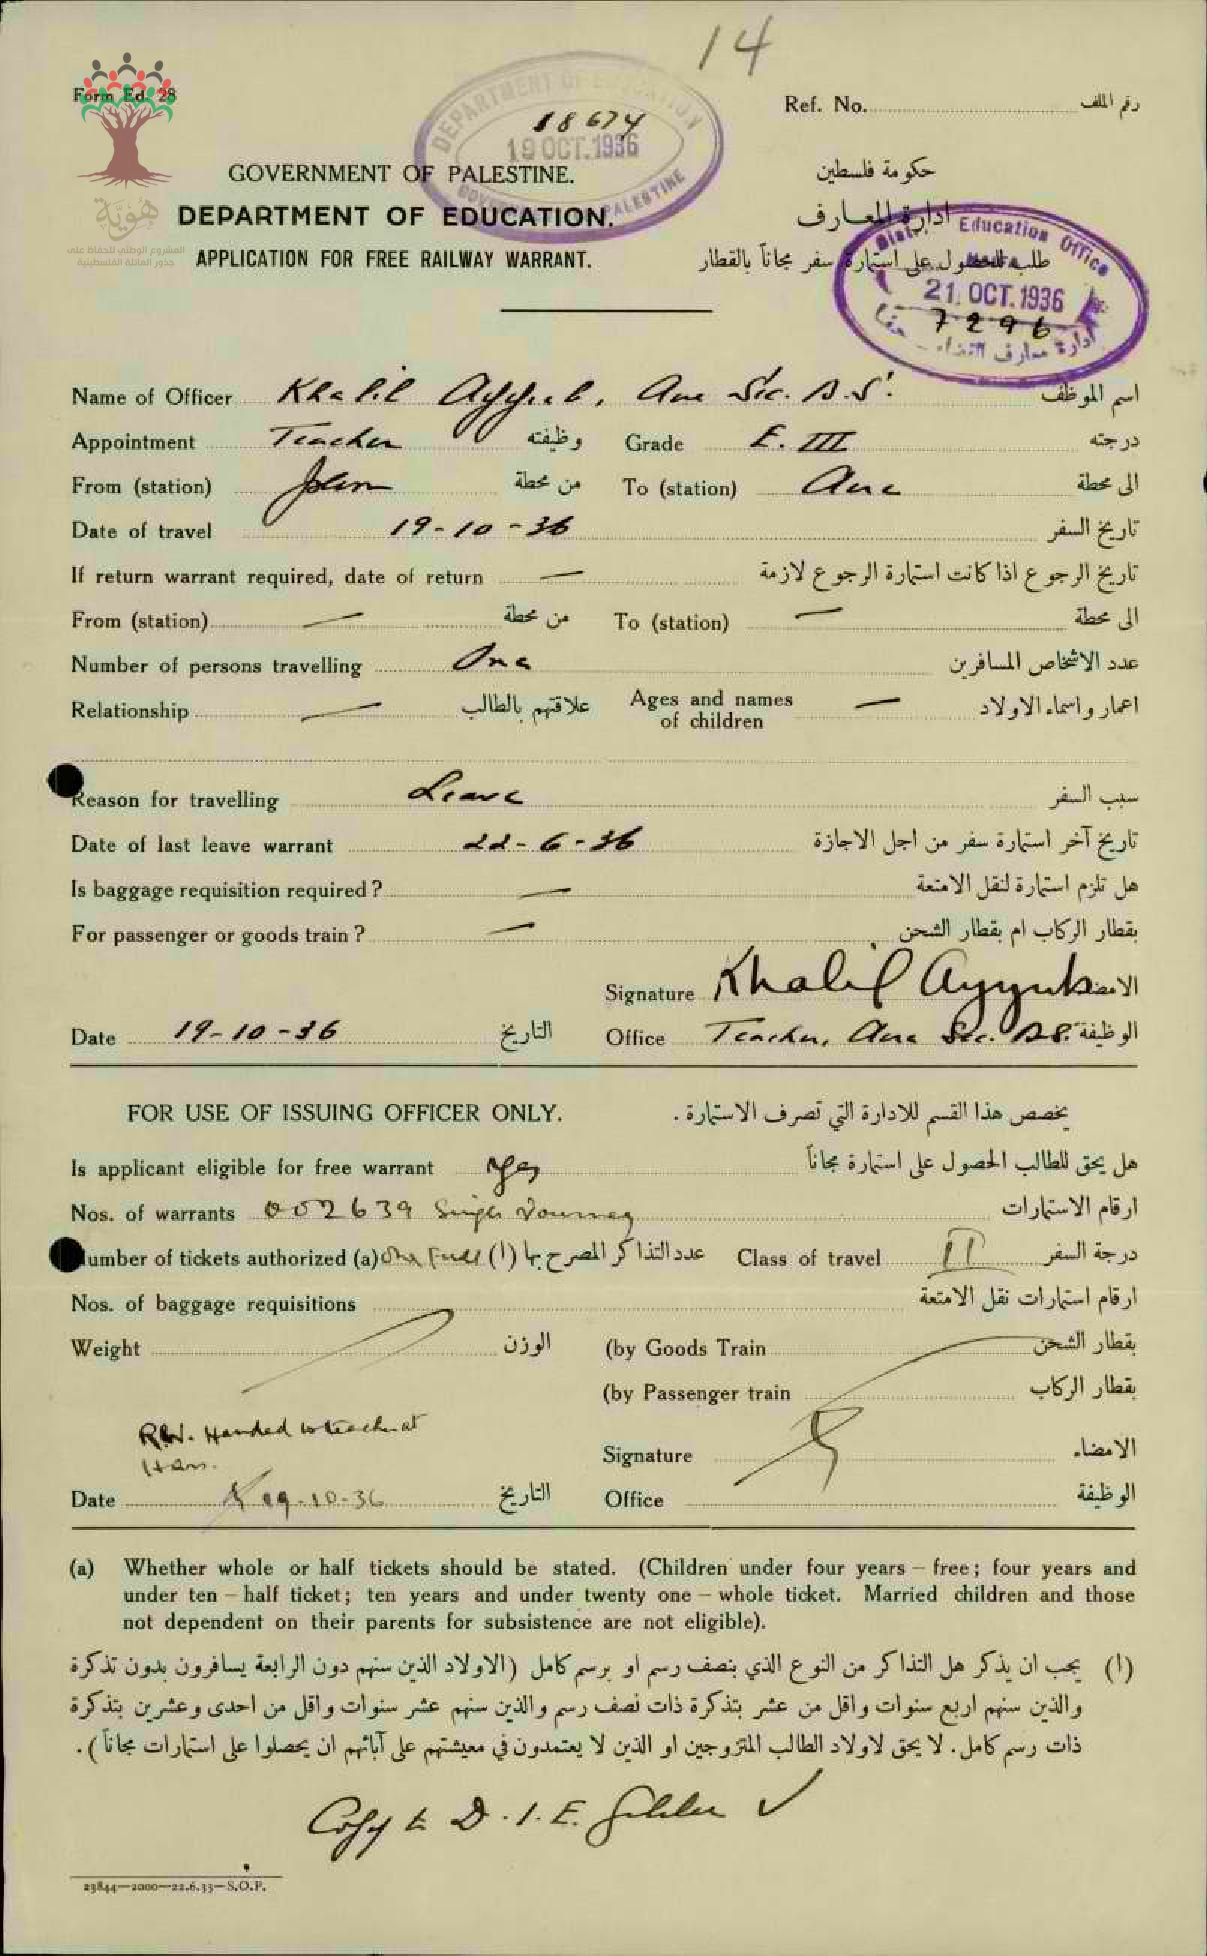 14
Form Ed. 28
Ref. No. رقم الملف
DEPARTMENT OF EDUCATION
18674
19 OCT. 1936
GOVERNMENT OF PALESTINE
GOVERNMENT OF PALESTINE. حكومة فلسطين
DEPARTMENT OF EDUCATION. ادارة المعارف
APPLICATION FOR FREE RAILWAY WARRANT. طلب للحصول على استمارة سفر مجاناً بالقطار
هُويّة
المشروع الوطني للحفاظ على
جذور العائلة الفلسطينية
District Education Office
21. OCT. 1936
7296
Name of Officer Khalil Ayyub, Acre Sec. B.S. اسم الموظف
Appointment Teacher وظيفته Grade E. III درجته
From (station) من محطة To (station) Acre الى محطة
Date of travel 19-10-36 تاريخ السفر
If return warrant required, date of return — تاريخ الرجوع اذا كانت استمارة الرجوع لازمة
From (station) — من محطة To (station) — الى محطة
Number of persons travelling One عدد الاشخاص المسافرين
Relationship — علاقتهم بالطالب Ages and names of children — اعمار واسماء الاولاد
Reason for travelling Leave سبب السفر
Date of last leave warrant 22-6-36 تاريخ آخر استمارة سفر من اجل الاجازة
Is baggage requisition required? — هل تلزم استمارة لنقل الامتعة
For passenger or goods train? — بقطار الركاب ام بقطار الشحن
Signature Khalil Ayyub الامضاء
Date 19-10-36 التاريخ Office Teacher, Acre Sec. B.S. الوظيفة
FOR USE OF ISSUING OFFICER ONLY. يخصص هذا القسم للادارة التي تصرف الاستمارة.
Is applicant eligible for free warrant Yes هل يحق للطالب الحصول على استمارة مجاناً
Nos. of warrants 002639 Single Journey ارقام الاستمارات
Number of tickets authorized (a) One Full عدد التذاكر المصرح بها (ا) Class of travel II درجة السفر
Nos. of baggage requisitions ارقام استمارات نقل الامتعة
Weight الوزن (by Goods Train بقطار الشحن
(by Passenger train بقطار الركاب
R.W. Handed to teacher at
Signature الامضاء
Date 19-10-36 التاريخ Office الوظيفة
(a) Whether whole or half tickets should be stated. (Children under four years – free; four years and
under ten – half ticket; ten years and under twenty one – whole ticket. Married children and those
not dependent on their parents for subsistence are not eligible).
(ا) يجب ان يذكر هل التذاكر من النوع الذي بنصف رسم او برسم كامل (الاولاد الذين سنهم دون الرابعة يسافرون بدون تذكرة
والذين سنهم اربع سنوات واقل من عشر بتذكرة ذات نصف رسم والذين سنهم عشر سنوات واقل من احدى وعشرين بتذكرة
ذات رسم كامل. لا يحق لاولاد الطالب المتزوجين او الذين لا يعتمدون في معيشتهم على آبائهم ان يحصلوا على استمارات مجاناً).
Copy to D.I.E. Galilee ✓
23844—2000—22.6.33—S.O.P.